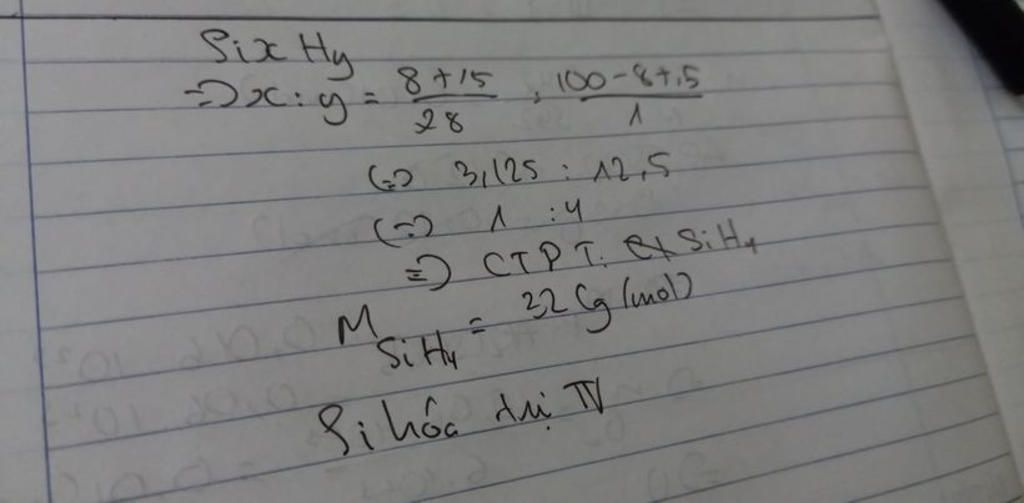 SixHy
=> x : y = 8+15/28 : 100-8+,5/1
<=> 3,125 : 12,5
<=> 1 : 4
=> CTPT: SiH4
M SiH4 = 32 (g/mol)
Si hóa trị IV